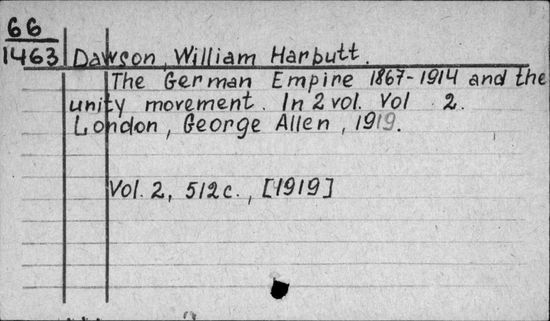 66
1463 Dawson, William Harbutt.
The German Empire 1867-1914 and the
unity movement. In 2 vol. Vol 2.
London, George Allen, 1919.
Vol. 2, 512 c., [1919]